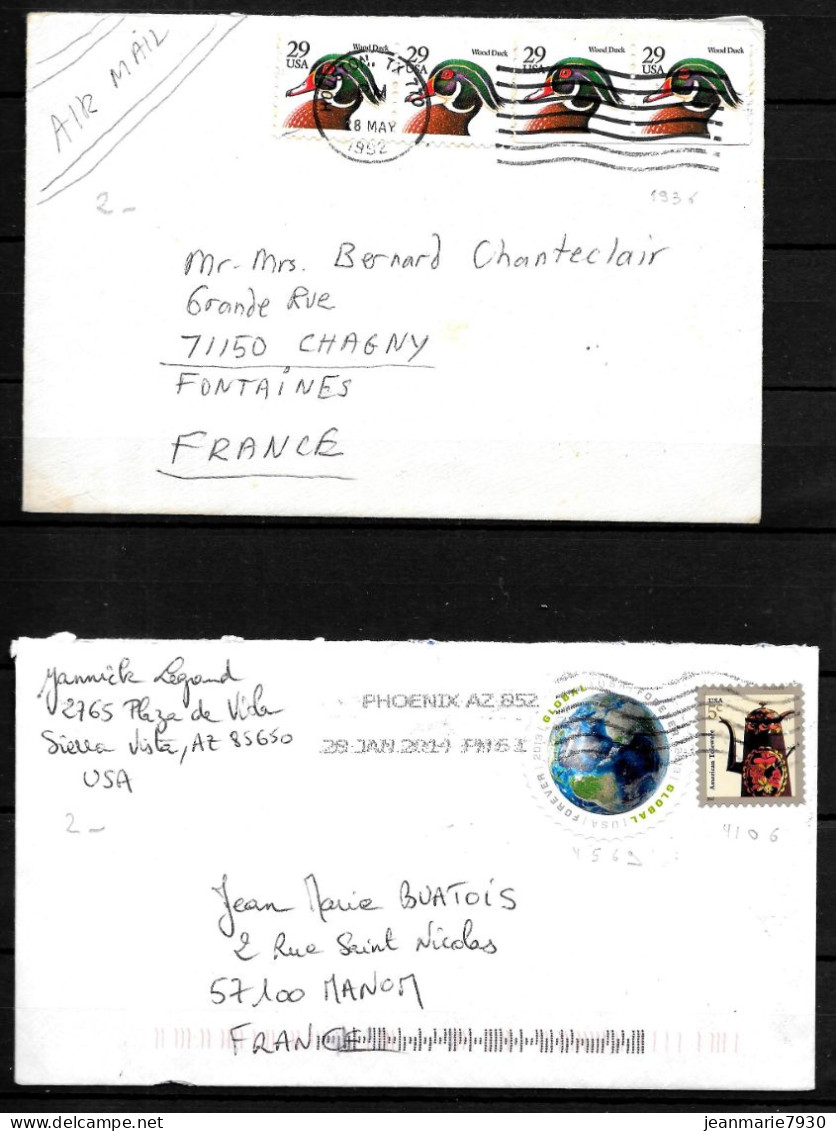 AIR MAIL
29 USA Wood Duck
29 USA Wood Duck
29 USA Wood Duck
29 USA Wood Duck
HOUSTON, TX 770
28 MAY
1992
2-
Mr-Mrs. Bernard Chanteclair
Grande Rue
71150 CHAGNY
FONTAINES
FRANCE
Yannick Legand
2765 Plaza de Vida
Sierra Vista, AZ 85650
USA
PHOENIX AZ 852
28 JAN 2014 PM 6 L
GLOBAL | USA | FOREVER 2013
USA
5c
American Toleware
2-
4569
4106
Jean Marie BUATOIS
2 Rue Saint Nicolas
57100 MANOM
FRANCE
jeanmarie7930